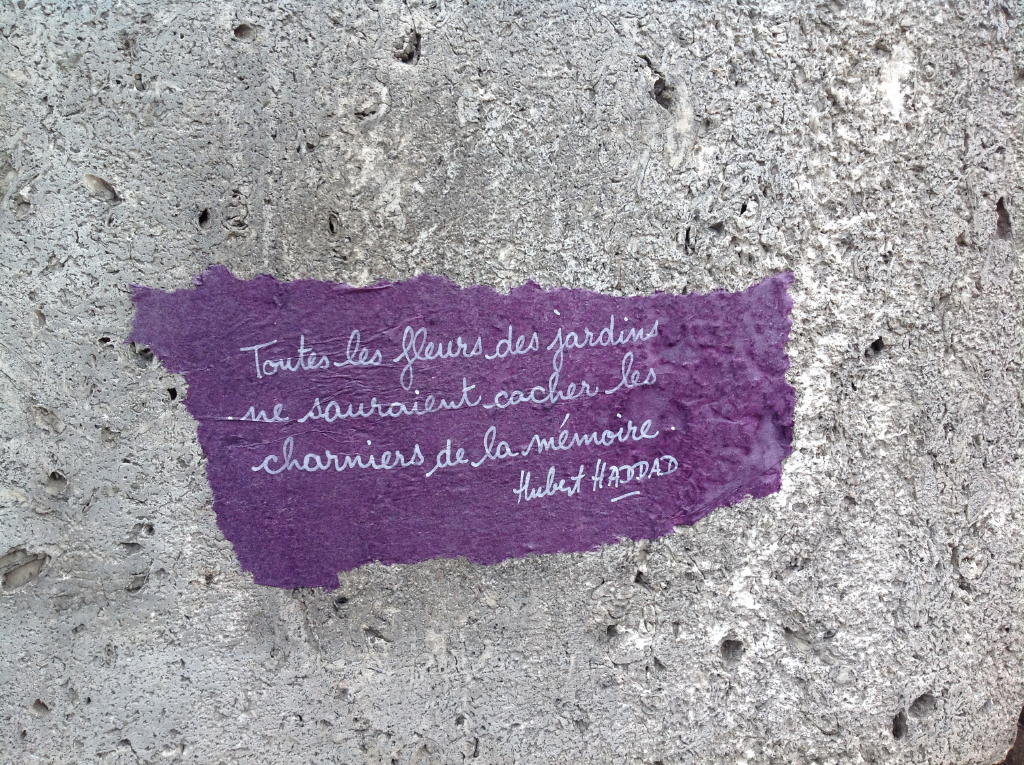 Toutes les fleurs des jardins
ne sauraient cacher les
charniers de la mémoire.
Hubert HADDAD